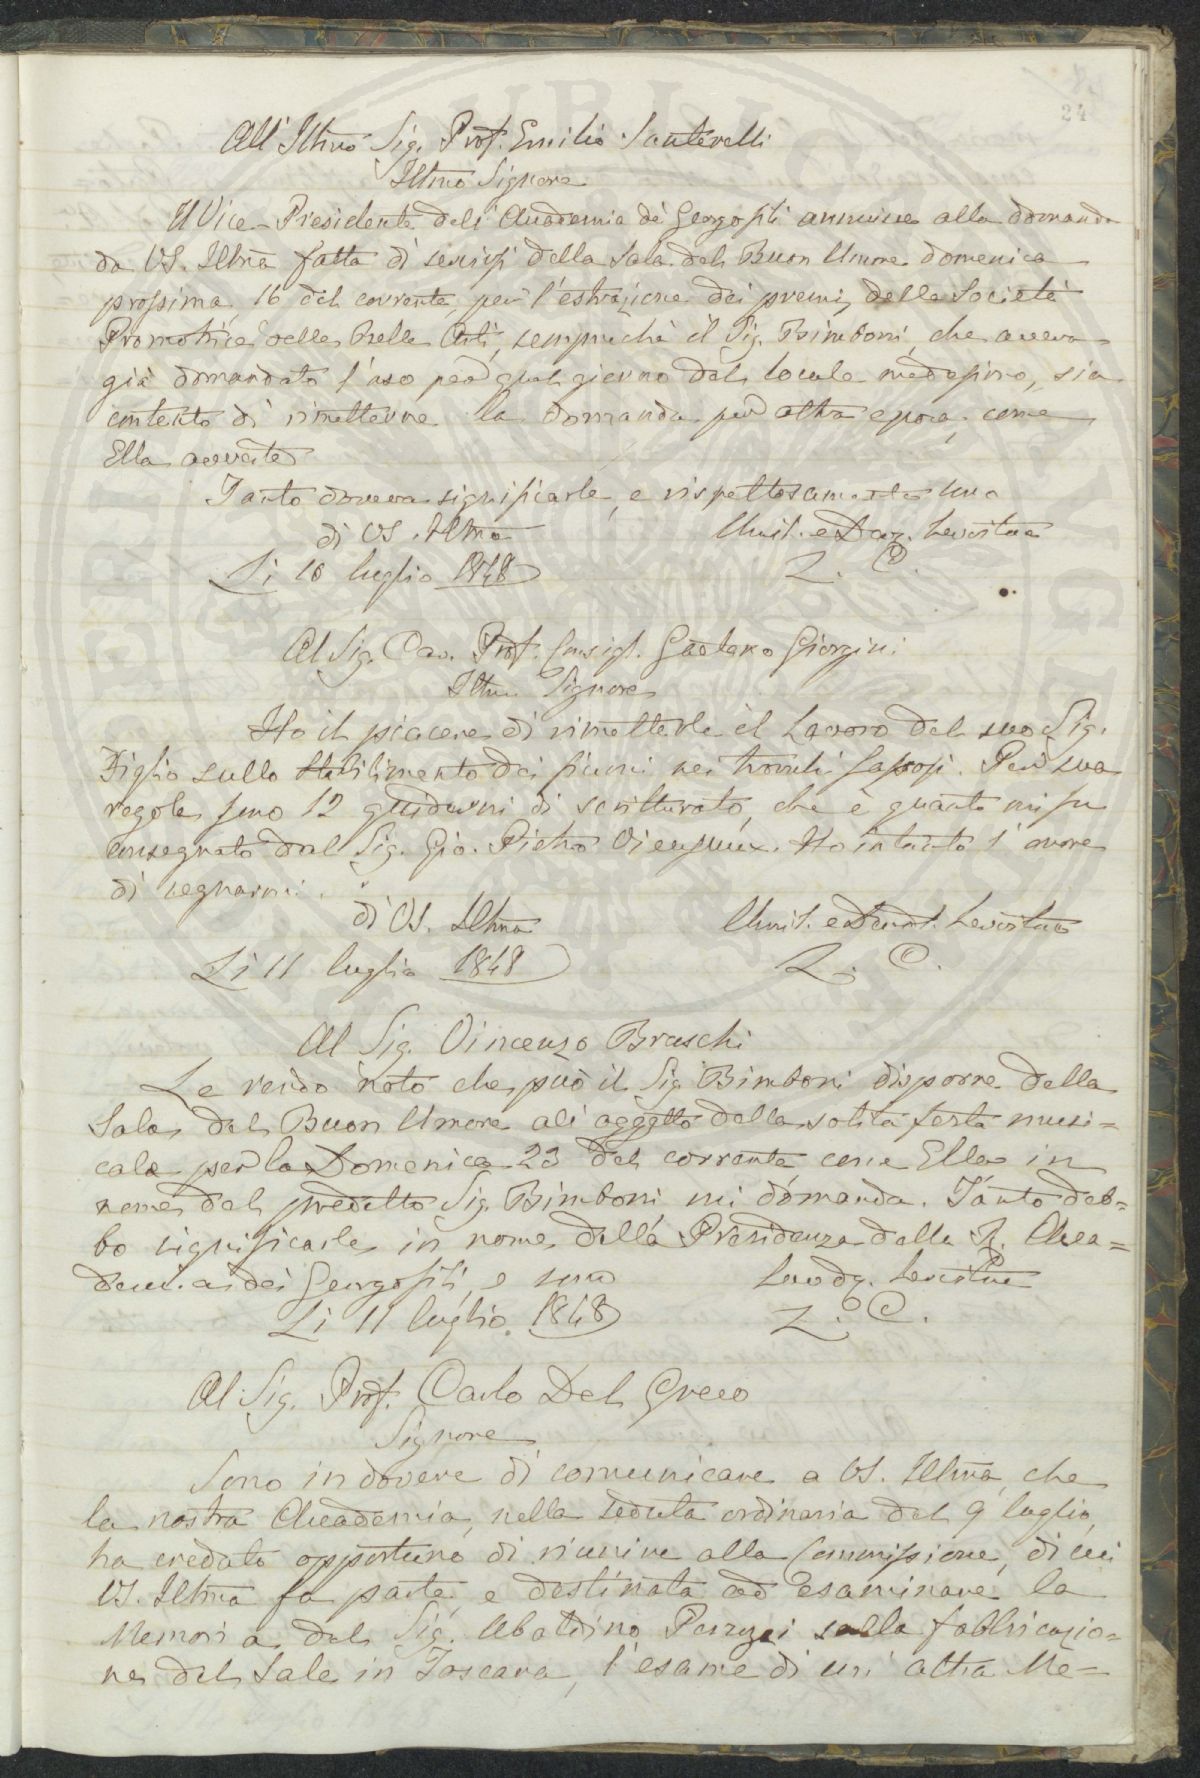 24
All' Illmo Sig. Prof. Emilio Santarelli
Illmo Signore
Il Vice-Presidente dell' Accademia dei Georgofili annuisce alla domanda
da VS. Illma fatta di servirsi della Sala del Buon Umore domenica
prossima, 16 del corrente, per l'estrazione dei premi della Società
Promotrice delle belle Arti, sempreché il Sig. Bimboni, che aveva
già domandato l'uso per quel giorno del locale medesimo, sia
contento di rimetterne la domanda per altra epoca, come
Ella avverte
Tanto doveva significarle, e rispettosamente sono
di VS. Illma Umil. e Dev. Servitore
Li 10 luglio 1848 L. C.
Al Sig. Cav. Prof. Consigl. Gaetano Giorgini
Illmo Signore
Ho il piacere di rimetterle il Lavoro del suo Sig.
Figlio sullo stabilimento dei fiumi nei tronchi sassosi. Per sua
regola sono 12 quiderni di scritturato, che è quanto mi fu
consegnato dal Sig. Gio. Pietro Vieusseux. Ho intanto l'onore
di segnarmi.
di VS. Illma Umil. e Devot. Servitore
Li 11 luglio 1848 L. C.
Al Sig. Vincenzo Braschi
Le rendo noto che può il Sig. Bimboni disporre della
Sala del Buon Umore all' oggetto della solita festa musi=
cale per la Domenica 23 del corrente come Ella in
nome del predetto Sig. Bimboni mi domanda. Tanto deb=
bo significarle in nome della Presidenza della R. Acca=
demia dei Georgofili, e sono Suo Servitore
Li 11 luglio 1848 L. C.
Al Sig. Prof. Carlo Del Greco
Signore
Sono in dovere di comunicare a VS. Illma, che
la nostra Accademia, nella seduta ordinaria del 9 luglio,
ha creduto opportuno di riunire alla Commissione, di cui
VS. Illma fa parte, e destinata ad esaminare la
Memoria del Sig. Ubaldino Peruzzi sulla fabbricazio=
ne del Sale in Toscana, l'esame di un' altra Me=